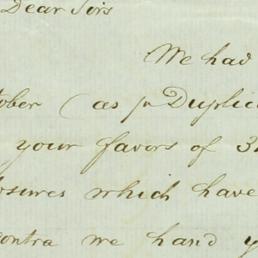 Dear Sirs
We had
tober (as pr Duplic
your favors of 3
osures which have
contra we hand y